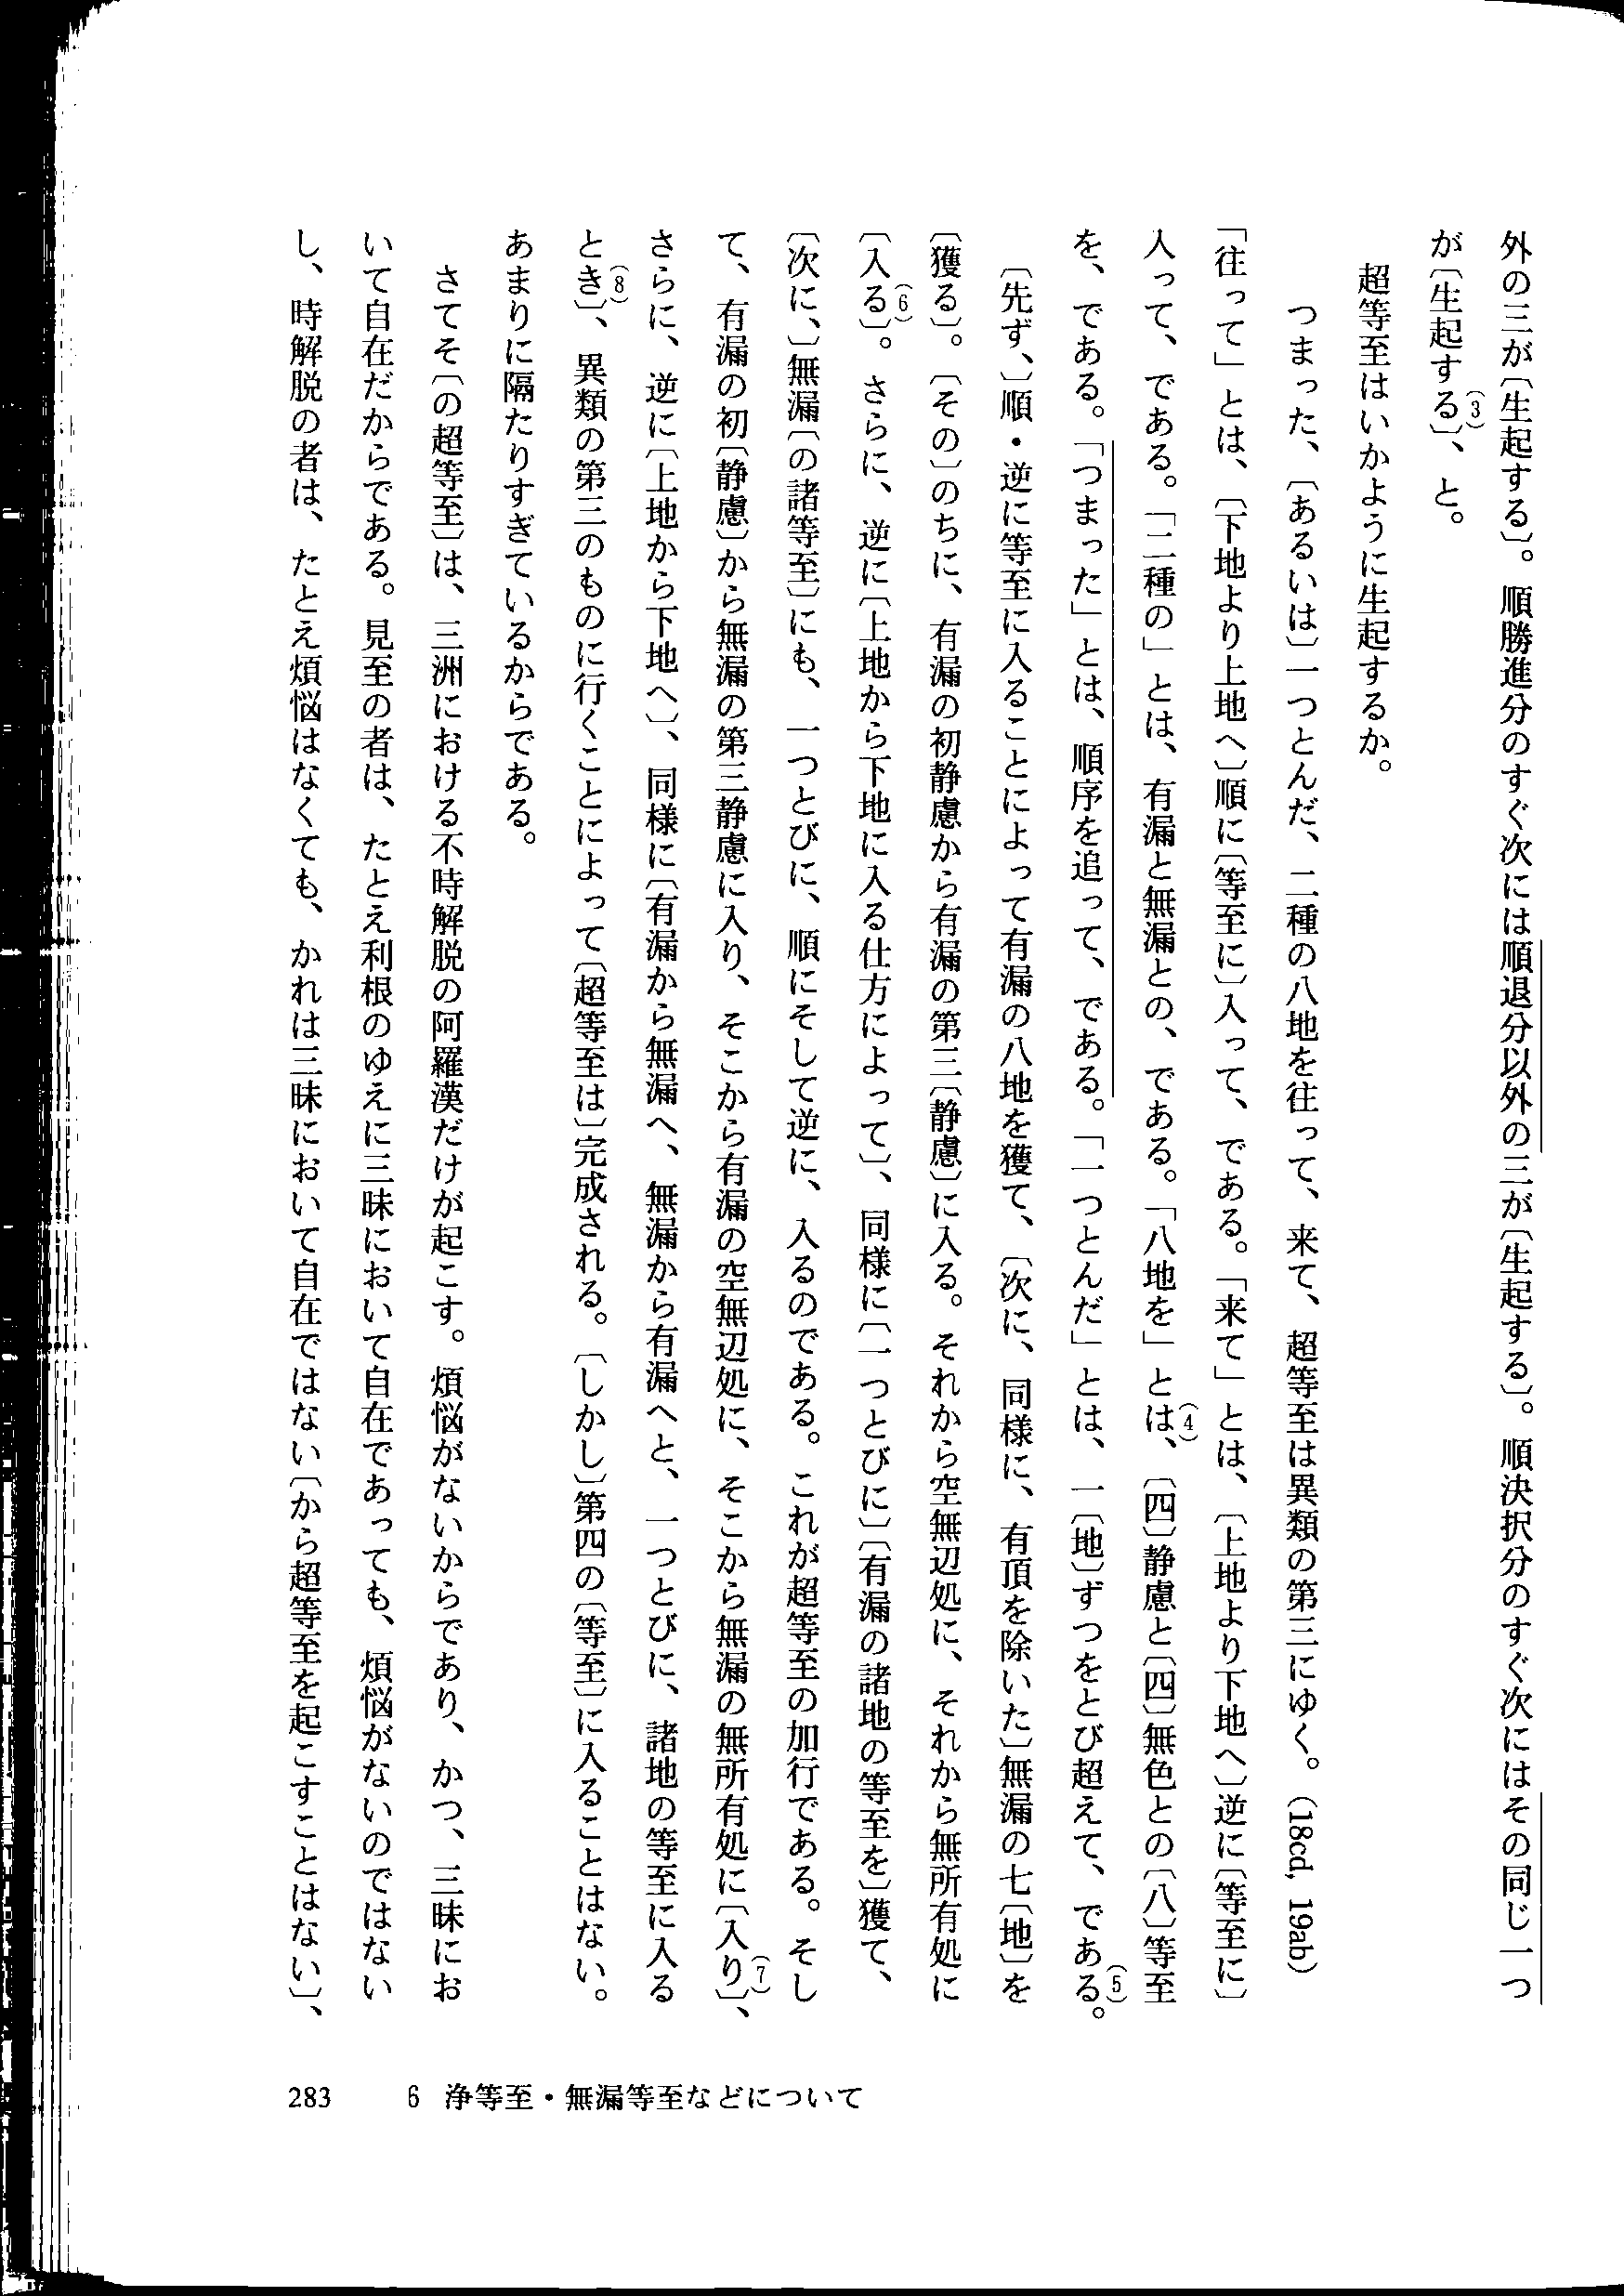 外の三が〔生起する〕。順勝進分のすぐ次には順退分以外の三が〔生起する〕。順決択分のすぐ次にはその同じ一つ
が〔生起する〕(3)、と。
超等至はいかように生起するか。
つまった、〔あるいは〕一つとんだ、二種の八地を往って、来て、超等至は異類の第三にゆく。(18cd, 19ab)
「往って」とは、〔下地より上地へ〕順に〔等至に〕入って、である。「来て」とは、〔上地より下地へ〕逆に〔等至に〕
入って、である。「二種の」とは、有漏と無漏との、である。「八地を」とは(4)、〔四〕静慮と〔四〕無色との〔八〕等至
を、である。「つまった」とは、順序を追って、である。「一つとんだ」とは、一〔地〕ずつをとび超えて、である(5)。
〔先ず、〕順・逆に等至に入ることによって有漏の八地を獲て、〔次に、同様に、有頂を除いた〕無漏の七〔地〕を
〔獲る〕。〔その〕のちに、有漏の初静慮から有漏の第三〔静慮〕に入る。それから空無辺処に、それから無所有処に
〔入る〕(6)。さらに、逆に〔上地から下地に入る仕方によって〕、同様に〔一つとびに〕〔有漏の諸地の等至を〕獲て、
〔次に、〕無漏〔の諸等至〕にも、一つとびに、順にそして逆に、入るのである。これが超等至の加行である。そし
て、有漏の初〔静慮〕から無漏の第三静慮に入り、そこから有漏の空無辺処に、そこから無漏の無所有処に〔入り〕(7)、
さらに、逆に〔上地から下地へ〕、同様に〔有漏から無漏へ、無漏から有漏へと、一つとびに、諸地の等至に入る
とき〕(8)、異類の第三のものに行くことによって〔超等至は〕完成される。〔しかし〕第四の〔等至〕に入ることはない。
あまりに隔たりすぎているからである。
さてそ〔の超等至〕は、三洲における不時解脱の阿羅漢だけが起こす。煩悩がないからであり、かつ、三昧にお
いて自在だからである。見至の者は、たとえ利根のゆえに三昧において自在であっても、煩悩がないのではない
し、時解脱の者は、たとえ煩悩はなくても、かれは三昧において自在ではない〔から超等至を起こすことはない〕、
283 6 浄等至・無漏等至などについて